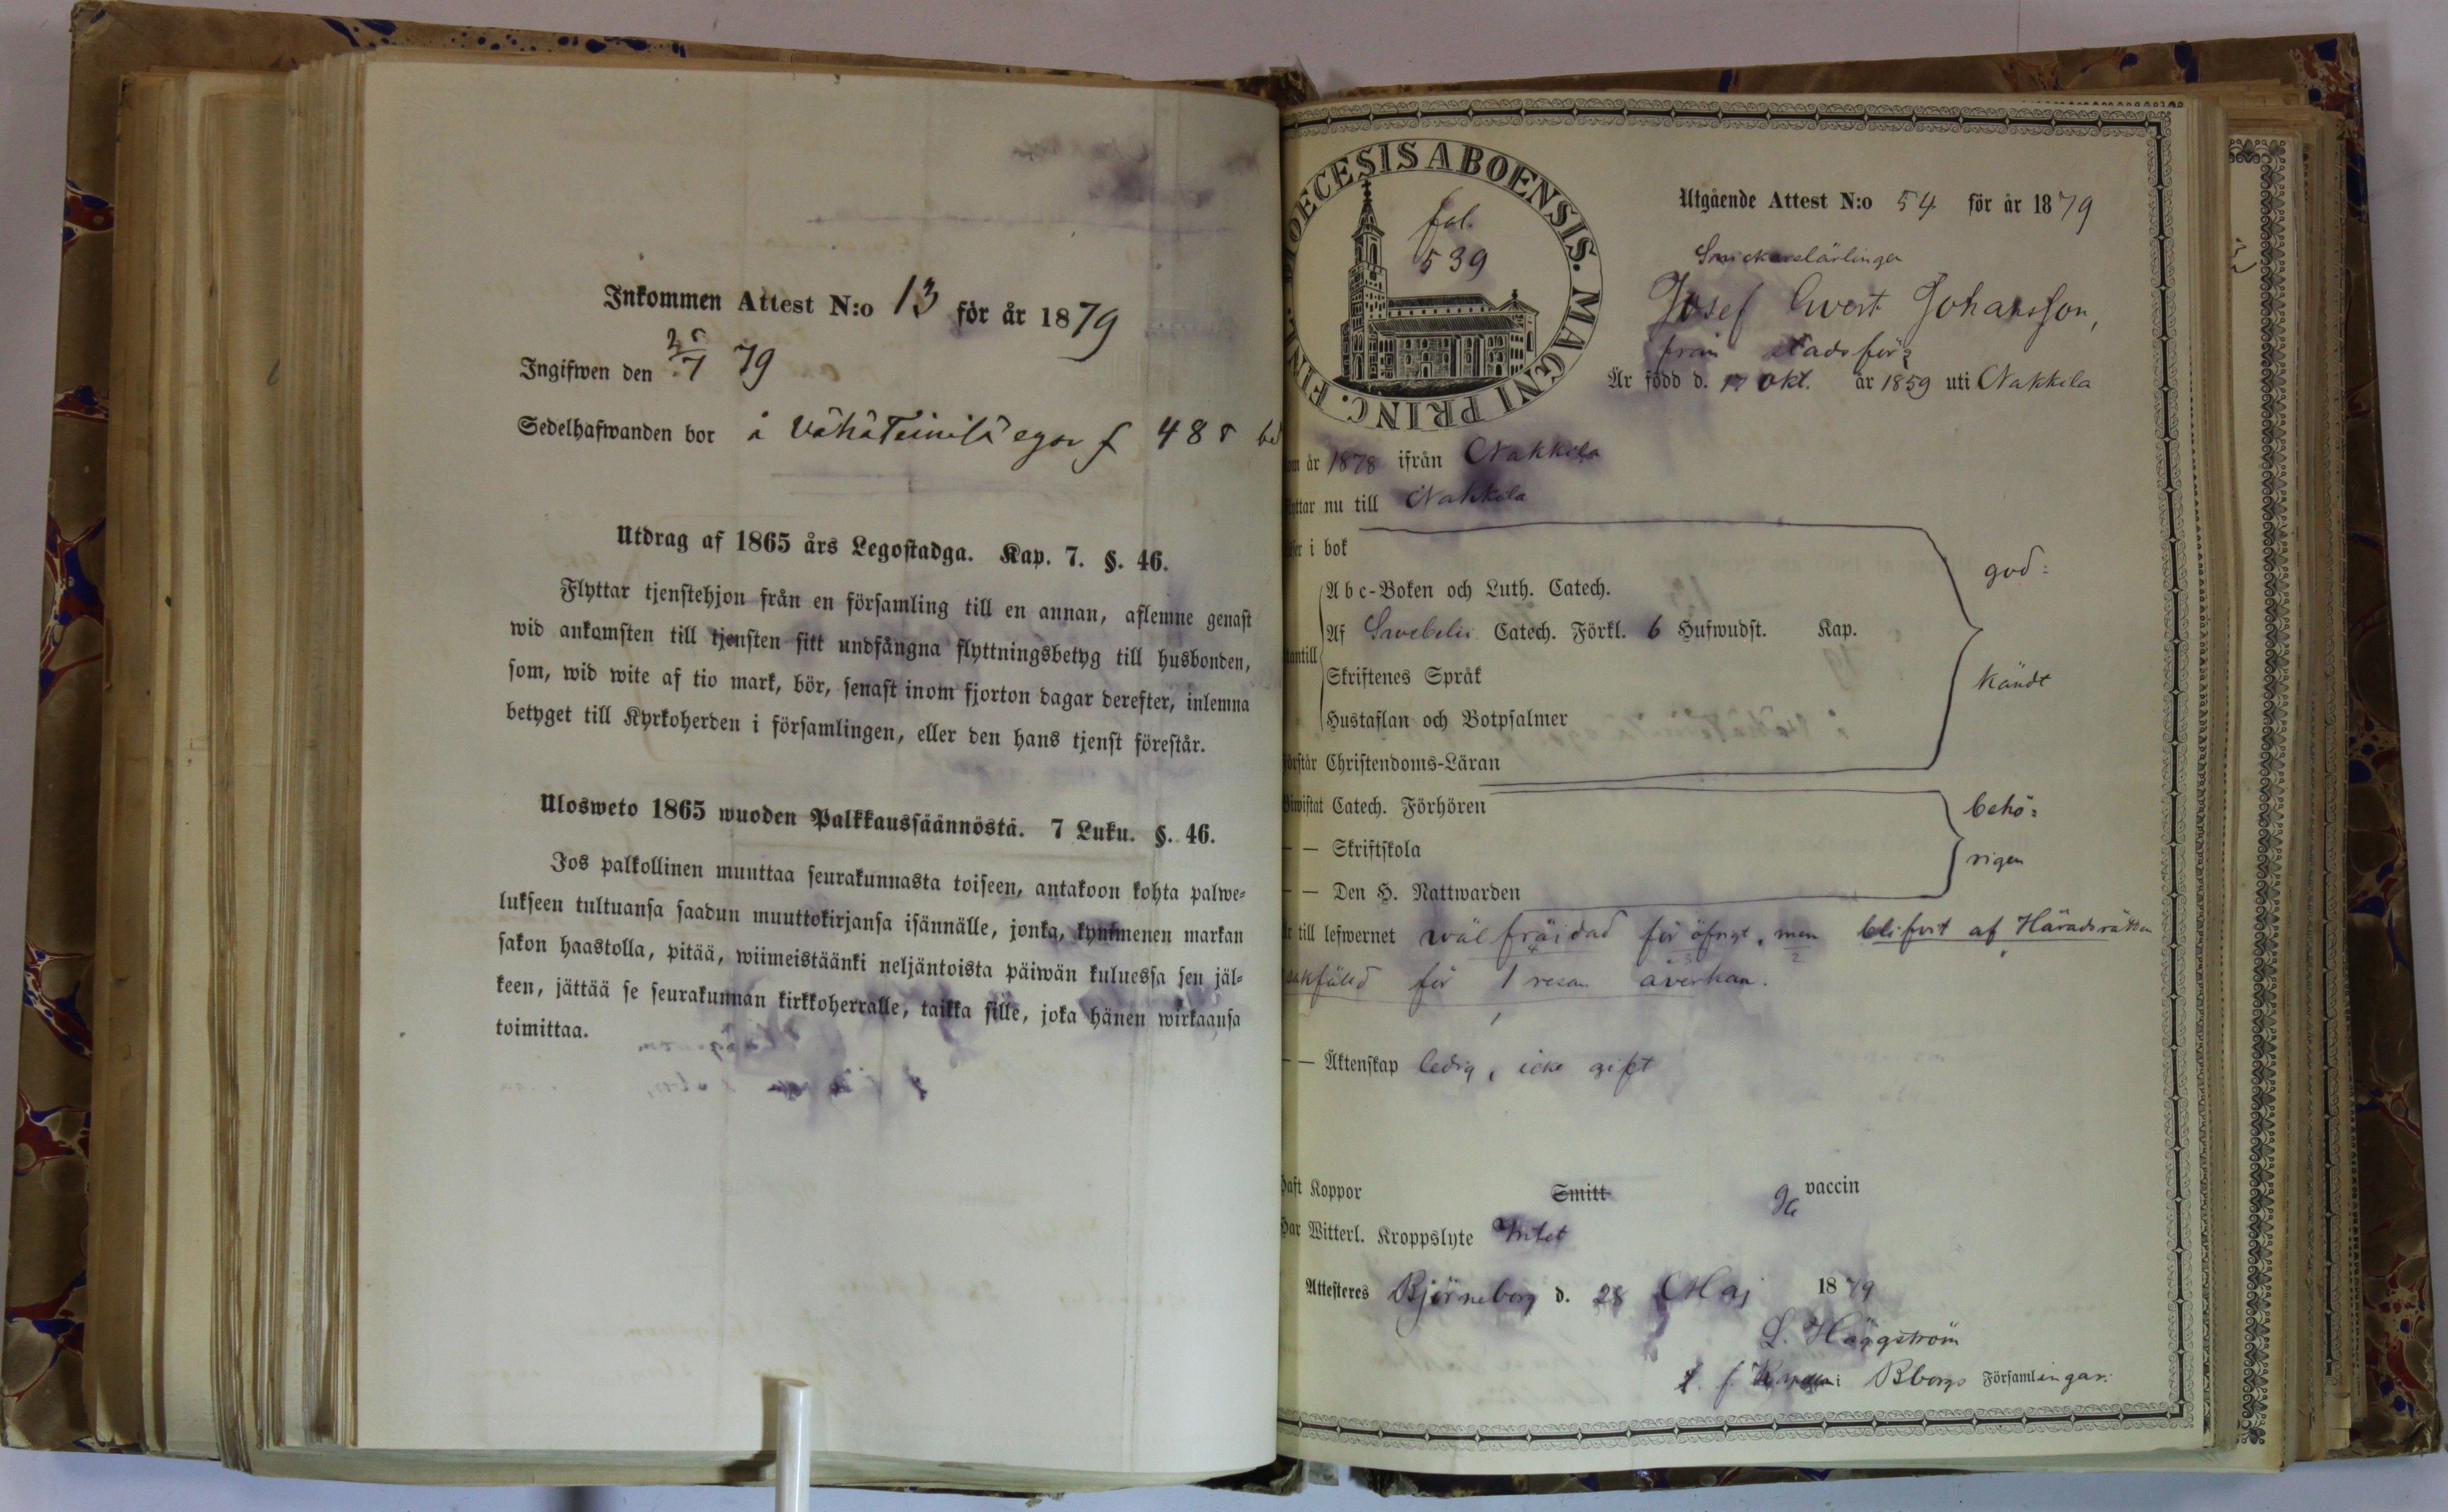 Inkommen Attest N:o 13 för år 1879
Ingifwen den 25/7 79
Sedelhafwanden bor å Vähäteinilä egor f 488
Utdrag af 1865 års Legostadga. Kap. 7. §. 46.
Flyttar tjenstehjon från en församling till en annan, aflemne genast
wid ankomsten till tjensten sitt undfångna flyttningsbetyg till husbonden,
som, wid wite af tio mark, bör, senast inom fjorton dagar derefter, inlemna
betyget till Kyrkoherden i församlingen, eller den hans tjenst förestår.
Ulosweto 1865 wuoden Palkkaussäännöstä. 7 Luku. §. 46.
Jos palkollinen muuttaa seurakunnasta toiseen, antakoon kohta palwe=
lukseen tultuansa saadun muuttokirjansa isännälle, jonka, kymmenen markan
sakon haastolla, pitää, wiimeistäänki neljäntoista päiwän kuluessa sen jäl=
keen, jättää se seurakunnan kirkkoherralle, taikka sille, joka hänen wirkaansa
toimittaa.
DIOECESIS ABOENSIS. MAGNI PRINC. FINL.
fol.
539
Utgående Attest N:o 54 för år 1879
Snickarelärlingen
Josef Evert Johansson,
från stadsförs
Är född d. 17 Okt. år 1859 uti Nakkila
om år 1878 ifrån Nakkila
yttar nu till Nakkila
i bok
god=
Abc-Boken och Luth. Catech.
Af Swebelii Catech. Förkl. 6 Hufwudst. Kap.
antill
Skriftenes Språk
kändt
Hustaflan och Botpsalmer
örstår Christendoms-Läran
iwistat Catech. Förhören
behö=
— — Skriftskola
rigen
— — Den H. Nattwarden
r till lefwernet wäl fräjdad för öfrigt, men blifvit af Häradsrätten
4 3 2
sakfälld för 1 resan åverkan.
— — Äktenskap ledig, icke gift
Haft Koppor Smitt vaccin
Har Witterl. Kroppslyte Intet
Attesteres Björneborg d. 28 Maj 1879
L. Häggström
f. Kapellan i Bborgs Församlingar.